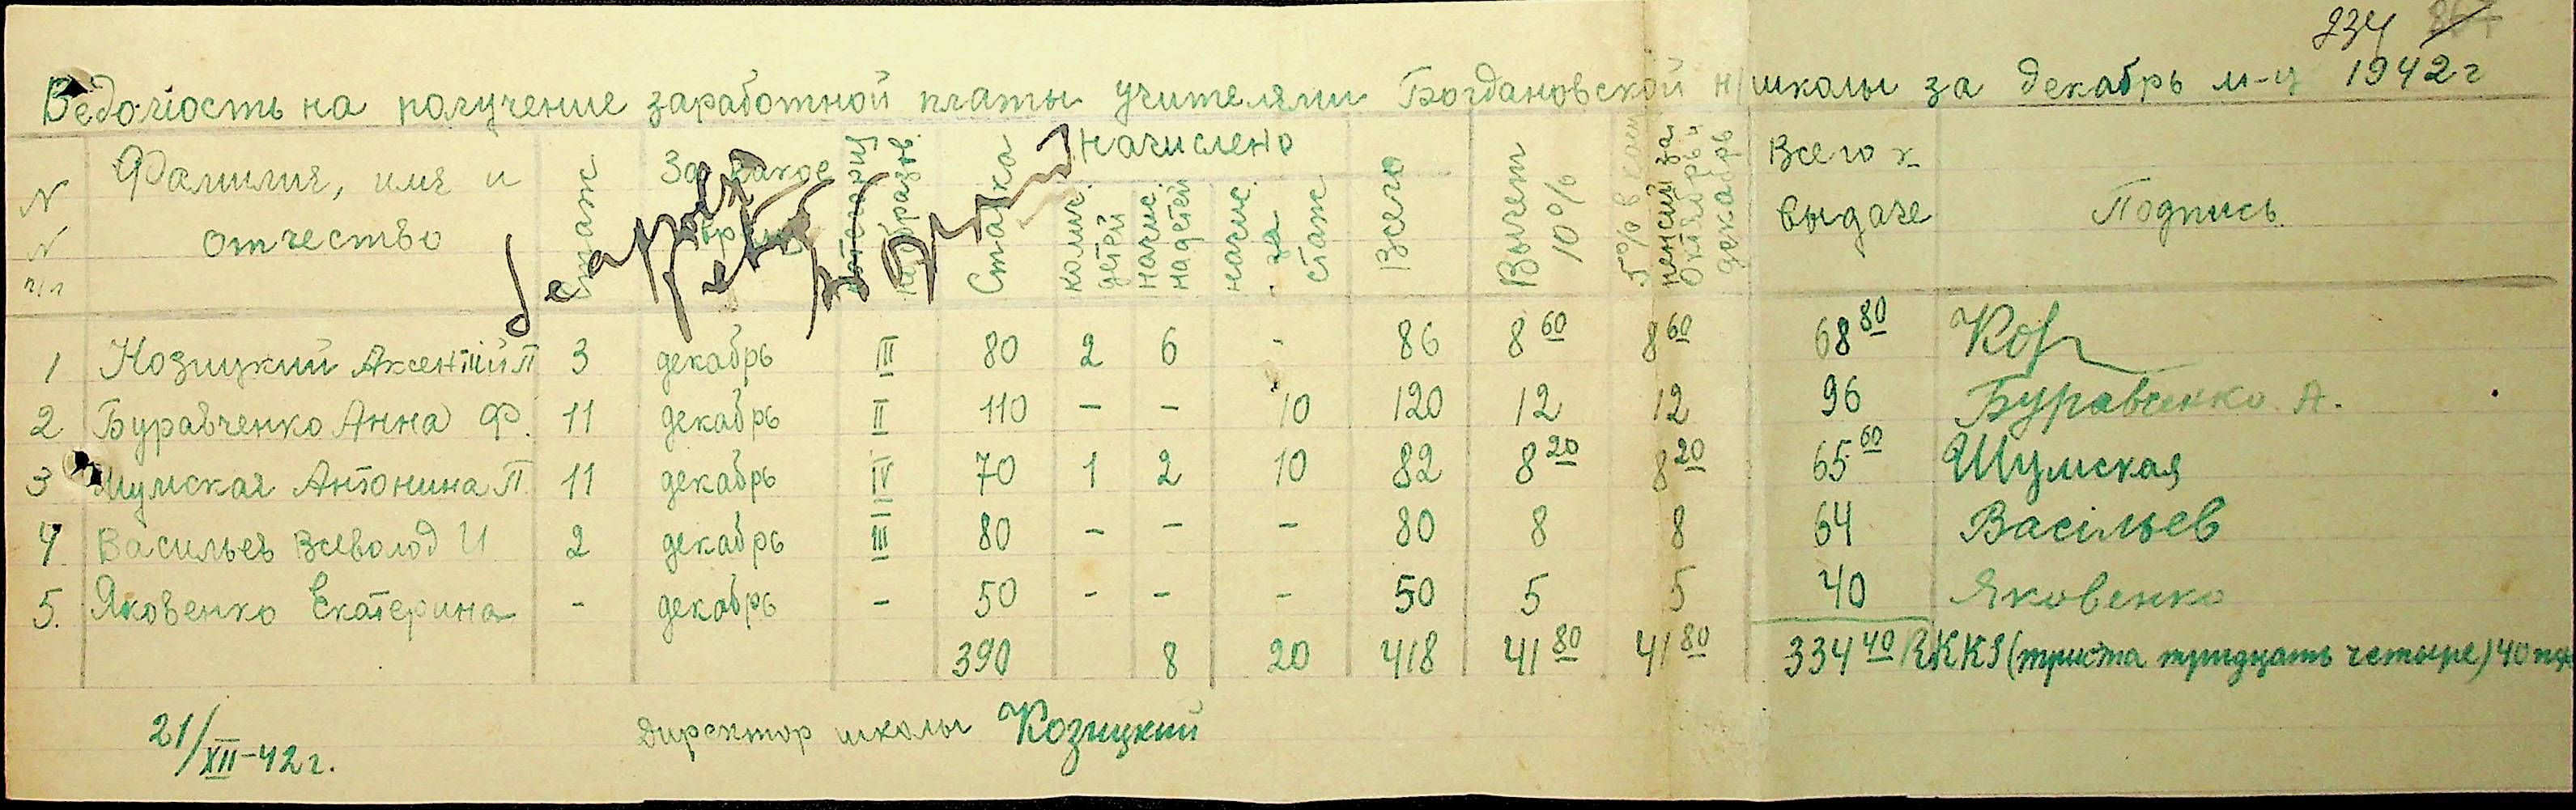 234
Ведомость на получение заработной платы учителями Богдановской н/школы за декабрь м-ц 1942 г
N N п/п Фамилия, имя и отчество стаж За какое время категория образов. Ставка Начислено колич. детей начис. на детей начис. за стаж Всего Вычет 10% 5% пенсии за октябрь и декабрь Всего к выдаче Подпись
1 Козицкий Аксентий П 3 декабрь III 80 2 6 - 86 8 60 8 60 68 80 Коз
2 Буравченко Анна Ф. 11 декабрь II 110 - - 10 120 12 12 96 Буравченко А.
3 Шумская Антонина П. 11 декабрь IV 70 1 2 10 82 8 20 8 20 65 60 Шумская
4 Васильев Всеволод И 2 декабрь III 80 - - - 80 8 8 64 Васільев
5. Яковенко Екатерина - декабрь - 50 - - - 50 5 5 40 Яковенко
390 8 20 418 41 80 41 80 334 40 RKKS (триста тридцать четыре) 40 пф
21/XII-42 г. Директор школы Козицкий